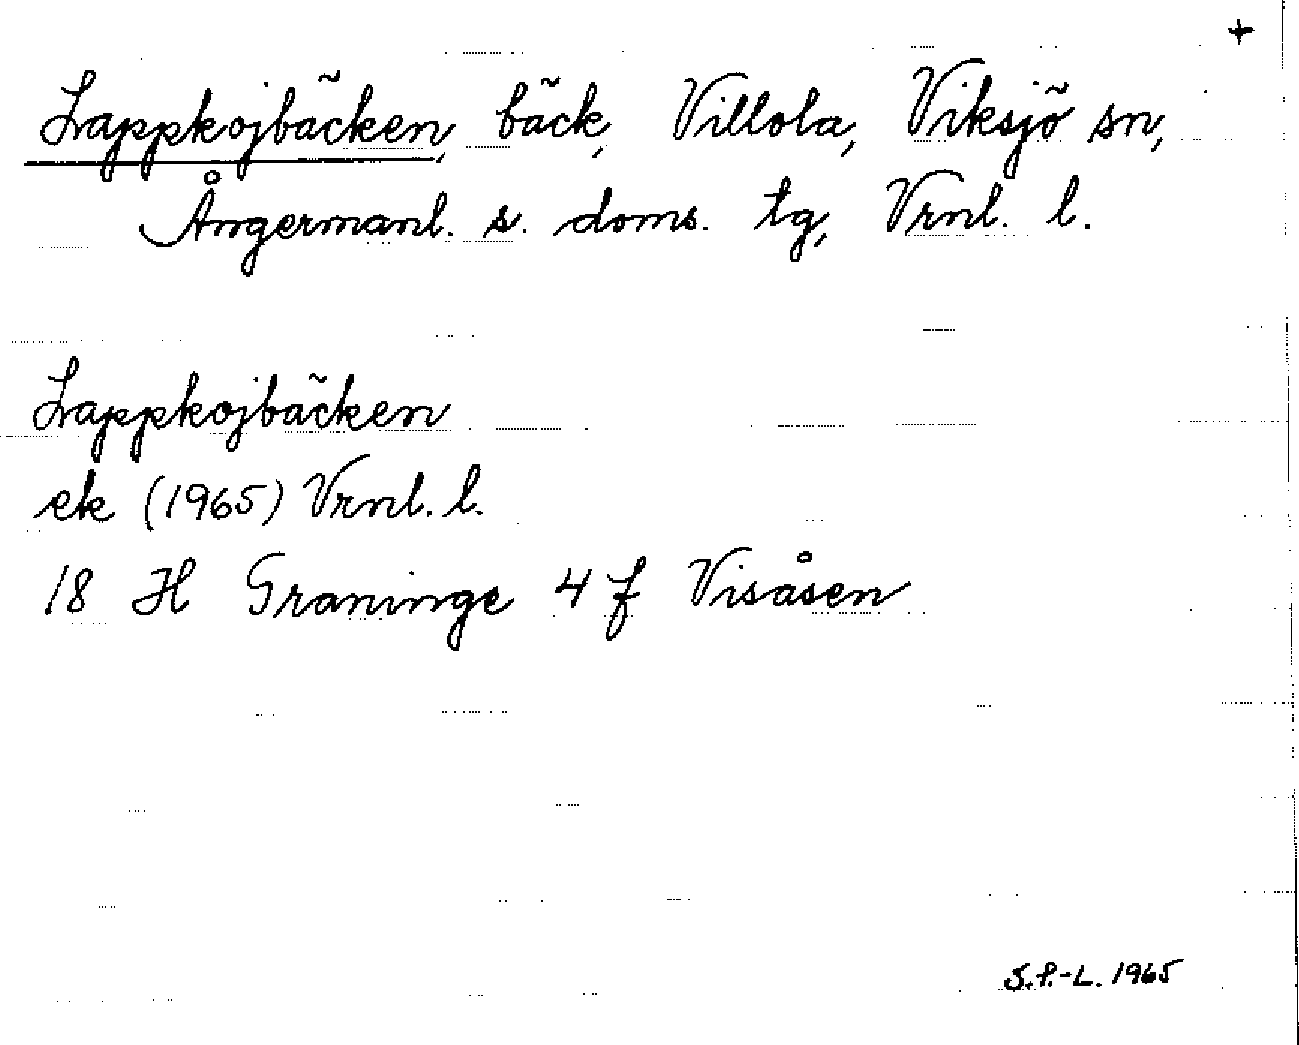 +
Lappkojbäcken, bäck, Villola, Viksjö sn,
Ångermanl. s. doms. tg, Vrnl. l.
Lappkojbäcken
ek (1965) Vrnl. l.
18 H Graninge 4 f Visåsen
S.P.-L. 1965